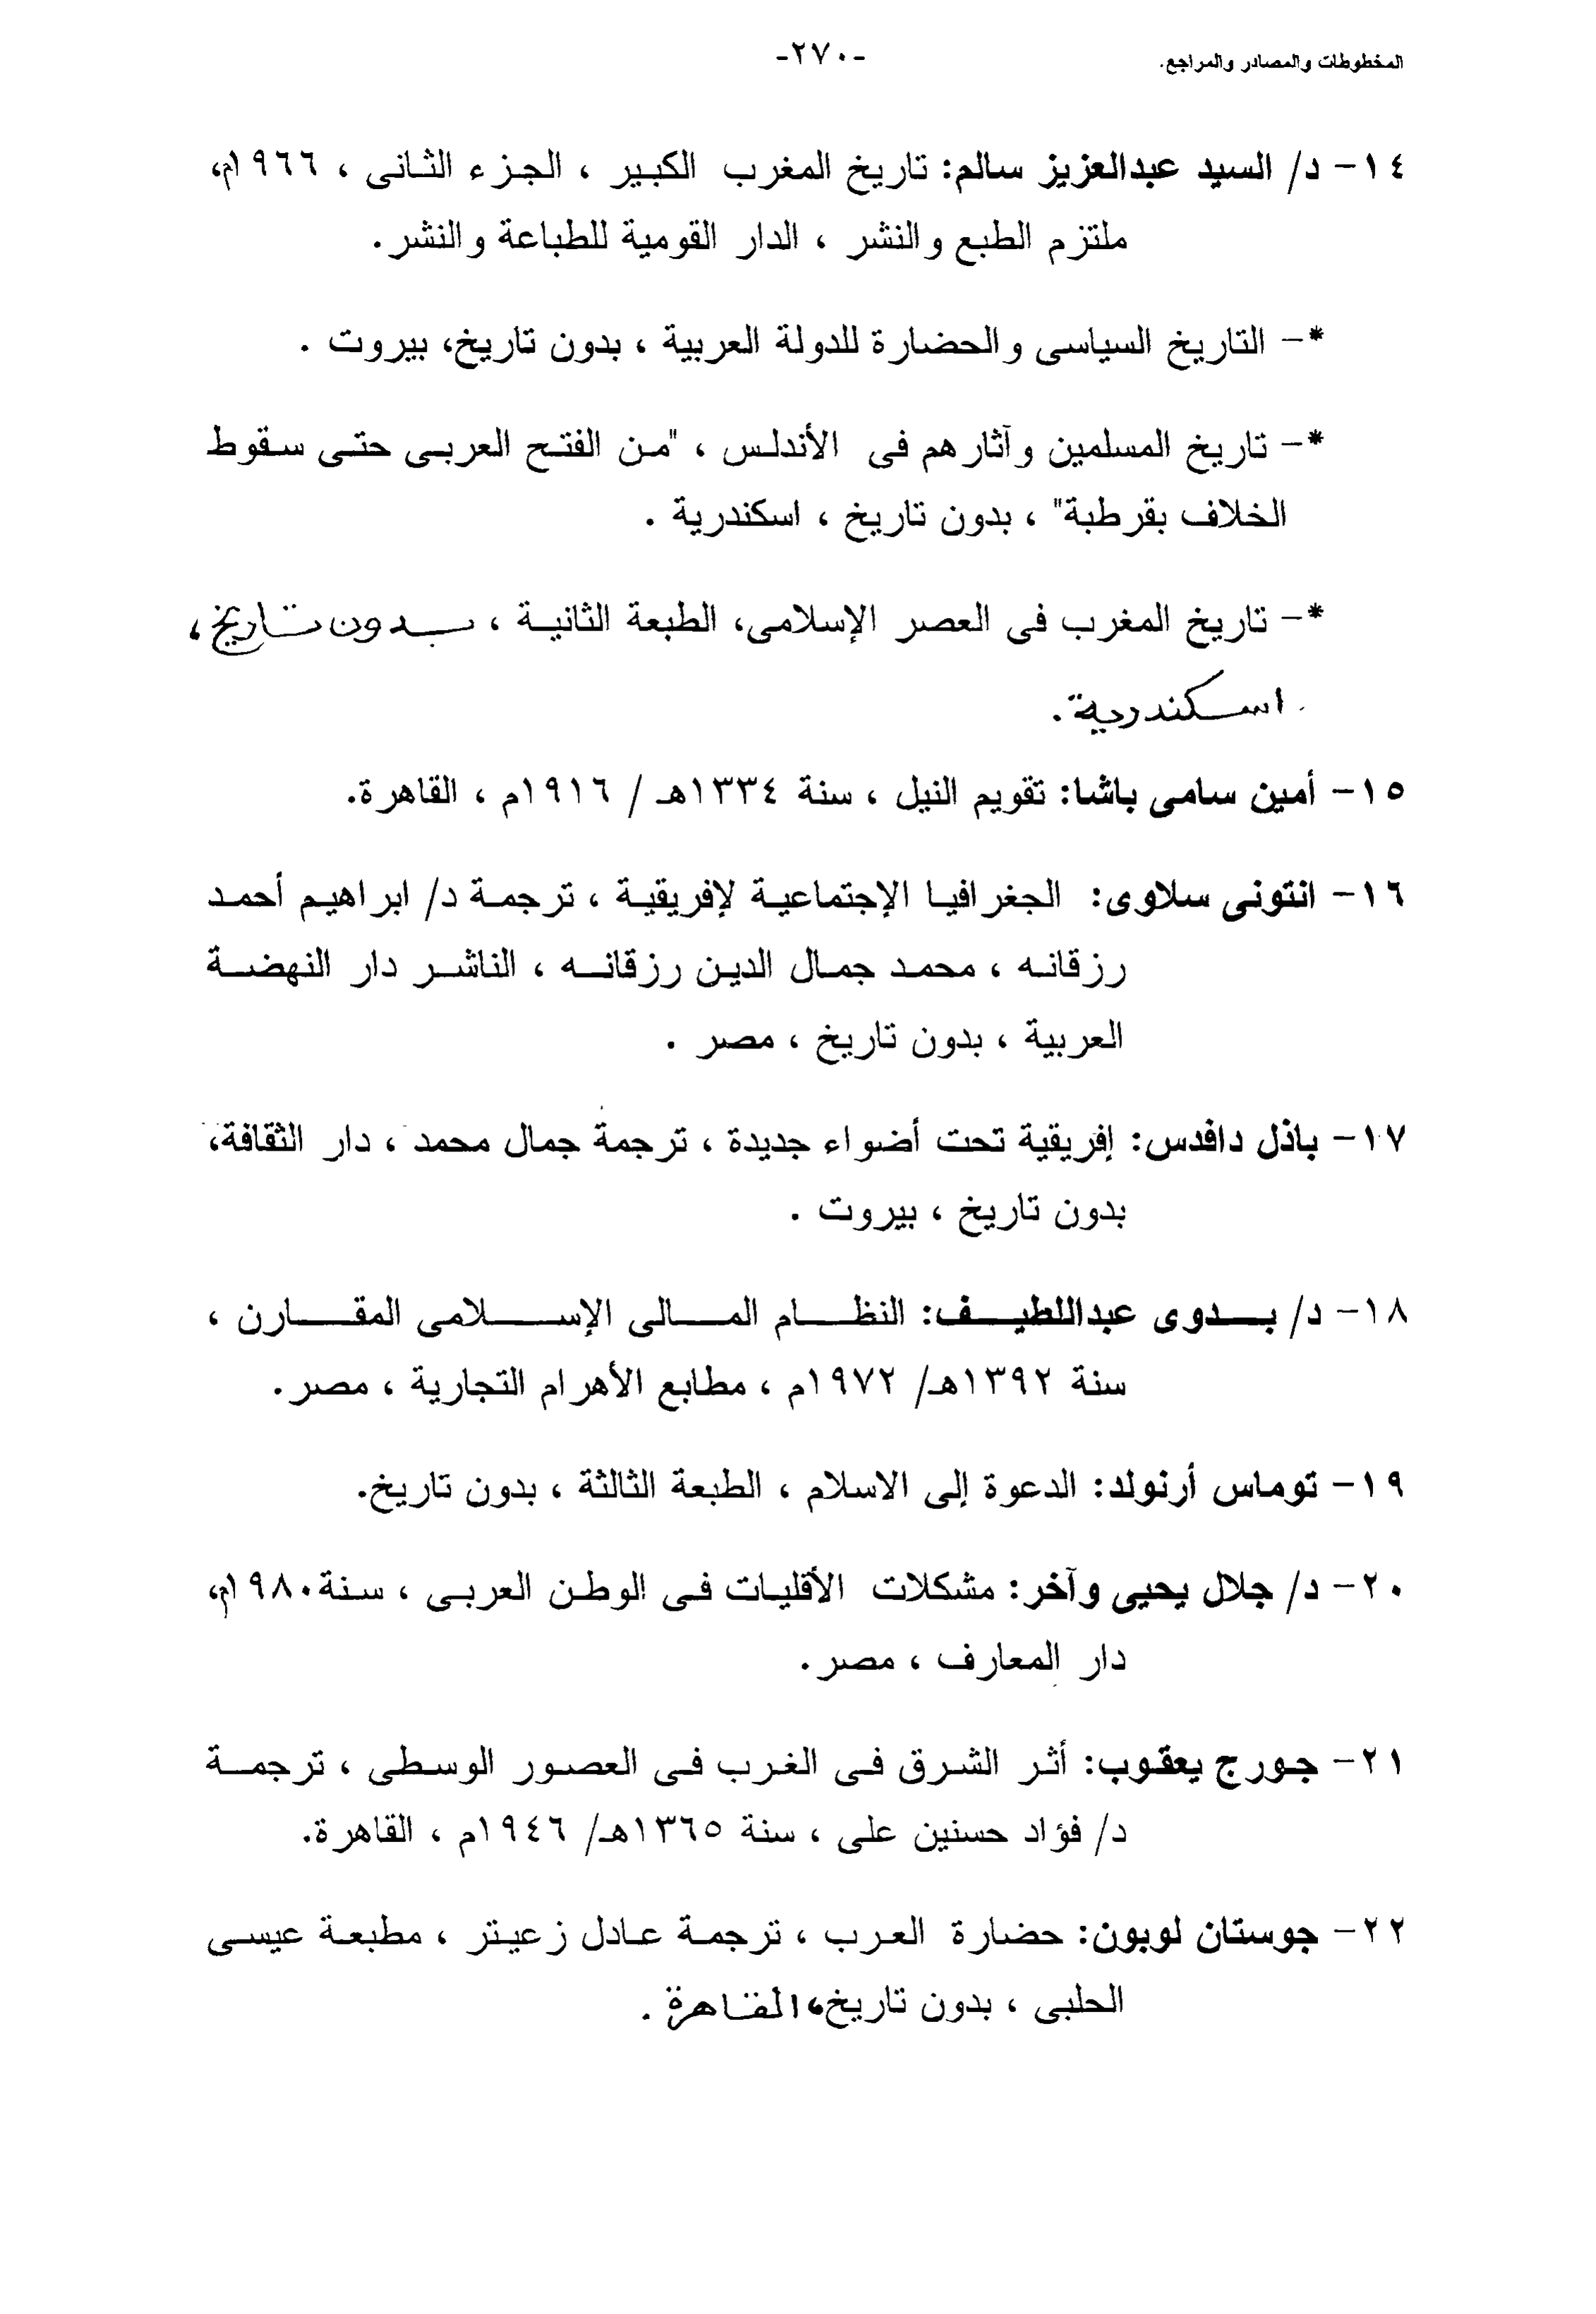 المخطوطات والمصادر والمراجع.
-٢٧٠-
١٤- د/ السيد عبدالعزيز سالم: تاريخ المغرب الكبير ، الجزء الثانى ، ١٩٦٦م،
ملتزم الطبع والنشر ، الدار القومية للطباعة والنشر.
*- التاريخ السياسى والحضارة للدولة العربية ، بدون تاريخ، بيروت .
*- تاريخ المسلمين وآثارهم فى الأندلس ، "من الفتح العربى حتى سقوط
الخلاف بقرطبة" ، بدون تاريخ ، اسكندرية .
*- تاريخ المغرب فى العصر الإسلامى، الطبعة الثانية ، بدون تاريخ ،
اسكندرية.
١٥- أمين سامى باشا: تقويم النيل ، سنة ١٣٣٤هـ / ١٩١٦م ، القاهرة.
١٦- انتونى سلاوى: الجغرافيا الإجتماعية لإفريقية ، ترجمة د/ ابراهيم أحمد
رزقانه ، محمد جمال الدين رزقانه ، الناشر دار النهضة
العربية ، بدون تاريخ ، مصر .
١٧- باذل دافدس: إفريقية تحت أضواء جديدة ، ترجمة جمال محمد ، دار الثقافة،
بدون تاريخ ، بيروت .
١٨- د/ بدوى عبداللطيف: النظام المالى الإسلامى المقارن ،
سنة ١٣٩٢هـ/ ١٩٧٢م ، مطابع الأهرام التجارية ، مصر.
١٩- توماس أرنولد: الدعوة إلى الاسلام ، الطبعة الثالثة ، بدون تاريخ.
٢٠- د/ جلال يحيى وآخر: مشكلات الأقليات فى الوطن العربى ، سنة ١٩٨٠م،
دار المعارف ، مصر.
٢١- جورج يعقوب: أثر الشرق فى الغرب فى العصور الوسطى ، ترجمة
د/ فؤاد حسنين على ، سنة ١٣٦٥هـ/ ١٩٤٦م ، القاهرة.
٢٢- جوستان لوبون: حضارة العرب ، ترجمة عادل زعيتر ، مطبعة عيسى
الحلبى ، بدون تاريخ، القاهرة .